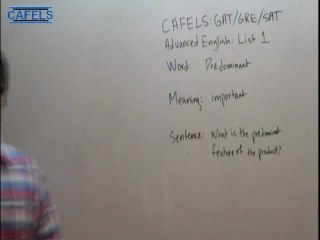 CAFELS
CAFELS: GAT/GRE/SAT
Advanced English: List 1
Word: Predominant
Meaning: important
Sentence: What is the predominant
feature of the product?